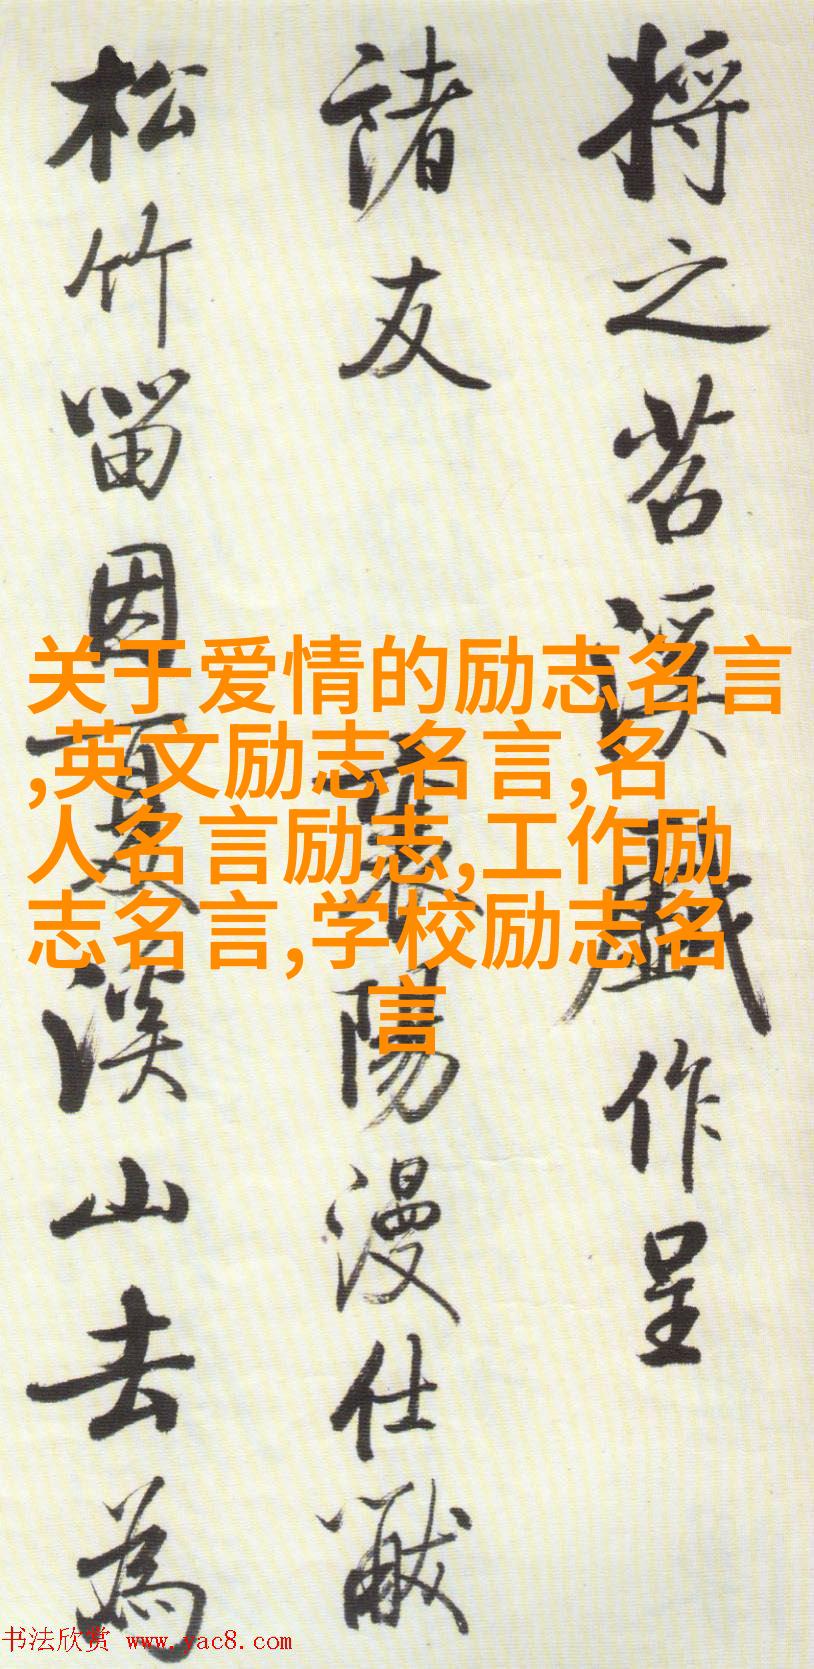 将之苕溪戲作呈
諸友
襄陽漫仕黻
松竹留因夏溪山去為
关于爱情的励志名言
,英文励志名言,名
人名言励志,工作励
志名言,学校励志名
言
书法欣赏 www.yac8.com